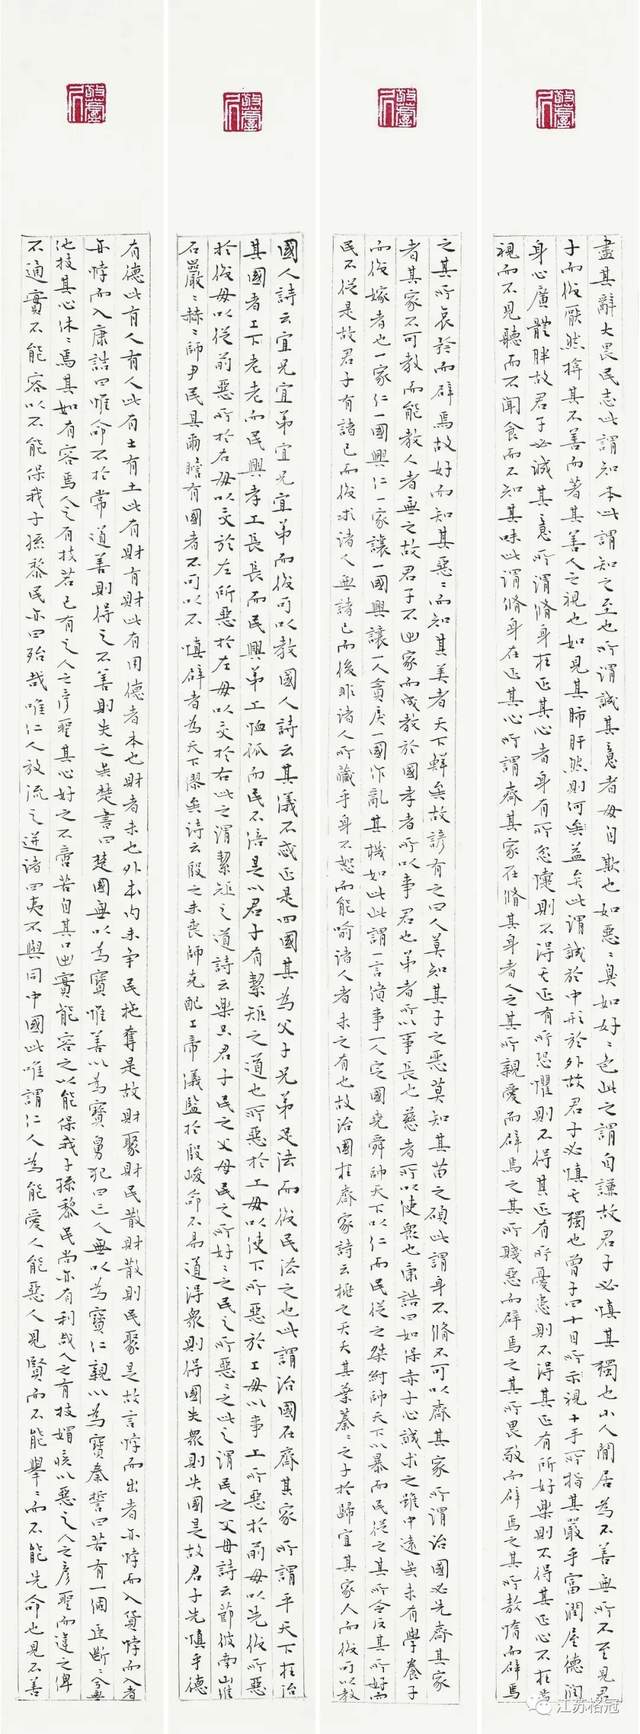 盡其辭大畏民志此謂知本此謂知之至也所謂誠其意者毋自欺也如惡〻臭如好〻色此之謂自謙故君子必慎其獨也小人閒居為不善無所不至見君
子而後厭然揜其不善而著其善人之視也如見其肺肝然則何矣益矣此謂誠於中形於外故君子必慎其獨也曾子曰十目所示視十手所指其嚴乎富潤屋德潤
身心廣體胖故君子必誠其意所謂脩身在正其心者身有所忿懥則不得其正有所恐懼則不得其正有所憂患則不得其正有所好樂則不得其正心不在焉
視而不見聽而不聞食而不知其味此謂脩身在正其心所謂齊其家在脩其身者人之其所親愛而辟焉之其所賤惡而辟焉之其所畏敬而辟焉之其所敖惰而辟焉
之其所哀矜而辟焉故好而知其惡〻而知其美者天下鲜矣故諺有之曰人莫知其子之惡莫知其苗之碩此謂身不脩不可以齊其家所謂治國必先齊其家
者其家不可教而能教人者無之故君子不出家而成教於國孝者所以事君也弟者所以事長也慈者所以使眾也康誥曰如保赤子心誠求之雖中遠矣未有學養子
而後嫁者也一家仁一國興仁一家讓一國興讓一人貪戾一國作亂其機如此此謂一言僨事一人定國堯舜帥天下以仁而民從之桀紂帥天下以暴而民從之其所令反其所好而
民不從是故君子有諸己而後求諸人無諸己而後非諸人所藏乎身不恕而能喻諸人者未之有也故治國在齊家詩云桃之夭夭其葉蓁〻之子於歸宜其家人而後可以教
國人詩云宜兄宜弟宜兄宜弟而後可以教國人詩云其儀不忒正是四國其為父子兄弟足法而後民法之也此謂治國在齊其家所謂平天下在治
其國者上下老老而民興孝上長長而民興弟上恤孤而民不倍是以君子有絜矩之道也所惡於上毋以使下所惡於下毋以事上所惡於前毋以先後所惡
於後毋以從前惡所於右毋以交於左所惡於左毋以交於右此之謂絜矩之道詩云樂只君子民之父母民之所好〻之民之所惡〻之此之謂民之父母詩云節彼南山維
石嚴〻赫〻師尹民具爾瞻有國者不可以不慎辟者為天下僇矣詩云殷之未喪師克配上帝儀監於殷峻命不易道得眾則得國失眾則失國是故君子先慎乎德
有德此有人有人此有土有土此有財有財此有用德者本也財者末也外本内末爭民施奪是故財聚財民散財散則民聚是故言悖而出者亦悖而入貨悖而入者
亦悖而入康誥曰惟命不於常道善則得之不善則失之矣楚書曰楚國無以為寶惟善以為寶舅犯曰亡人無以為寶仁親以為寶秦誓曰若有一個臣斷〻兮無
他技其心休〻焉其如有容焉人之有技若己有之人之彥聖其心好之不啻若自其口出實能容之以能保我子孫黎民尚亦有利哉人之有技媢疾以惡之人之彥聖而違之俾
不通實不能容以不能保我子孫黎民亦曰殆哉唯仁人放流之迸諸四夷不與同中國此唯謂仁人為能愛人能惡人見賢而不能舉〻而不能先命也見不善
江苏格冠